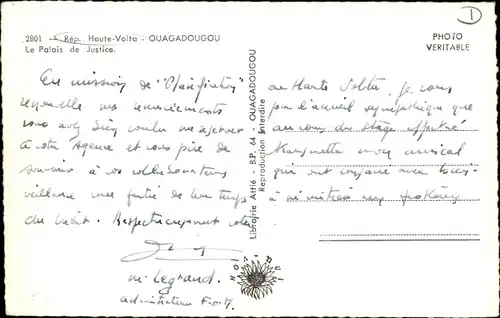 2801 - Rép. Haute-Volta - OUAGADOUGOU
Le Palais de Justice.
PHOTO
VERITABLE
1
En mission de "Planification"
renouvelle mes remerciements
vous avez bien voulu me réserver
à votre Agence et vous prie de
souvenir à vos collaborateurs
veillance une partie de leur temps
du crédit. Respectueusement vôtre
M. Legrand.
administrateur
Librairie Attié - B.P. 64 - OUAGADOUGOU
Reproduction Interdite
en Haute Volta, je vous
pour l'accueil sympathique que
au cours du stage effectué
amical
qui ont consacré avec bien-
à m'initier aux problèmes